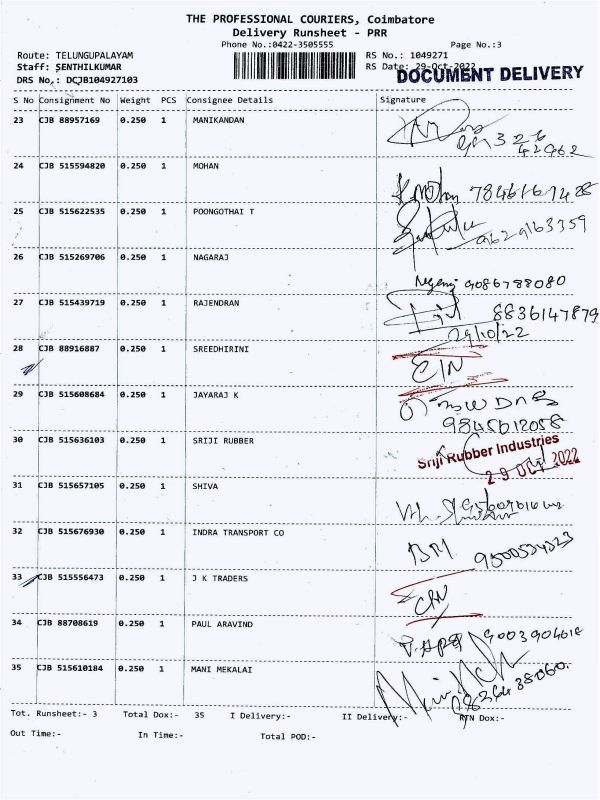 THE PROFESSIONAL COURIERS, Coimbatore
Delivery Runsheet - PRR
Phone No.:0422-3505555 Page No.:3
Route: TELUNGUPALAYAM RS No.: 1049271
Staff: SENTHILKUMAR RS Date: 29-Oct-2022
DRS No.: DCJB104927103 DOCUMENT DELIVERY
S No Consignment No Weight PCS Consignee Details Signature
23 CJB 88957169 0.250 1 MANIKANDAN
42962
24 CJB 515594820 0.250 1 MOHAN
25 CJB 515622535 0.250 1 POONGOTHAI T
9629163359
26 CJB 515269706 0.250 1 NAGARAJ
9086788080
27 CJB 515439719 0.250 1 RAJENDRAN
8836147879
29/10/22
28 CJB 88916887 0.250 1 SREEDHIRINI
29 CJB 515608684 0.250 1 JAYARAJ K
9845612058
30 CJB 515636103 0.250 1 SRIJI RUBBER
Sriji Rubber Industries
29 OCT 2022
31 CJB 515657105 0.250 1 SHIVA
32 CJB 515676930 0.250 1 INDRA TRANSPORT CO
33 CJB 515556473 0.250 1 J K TRADERS
34 CJB 88708619 0.250 1 PAUL ARAVIND
35 CJB 515610184 0.250 1 MANI MEKALAI
Tot. Runsheet:- 3 Total Dox:- 35 I Delivery:- II Delivery:- RTN Dox:-
Out Time:- In Time:- Total POD:-